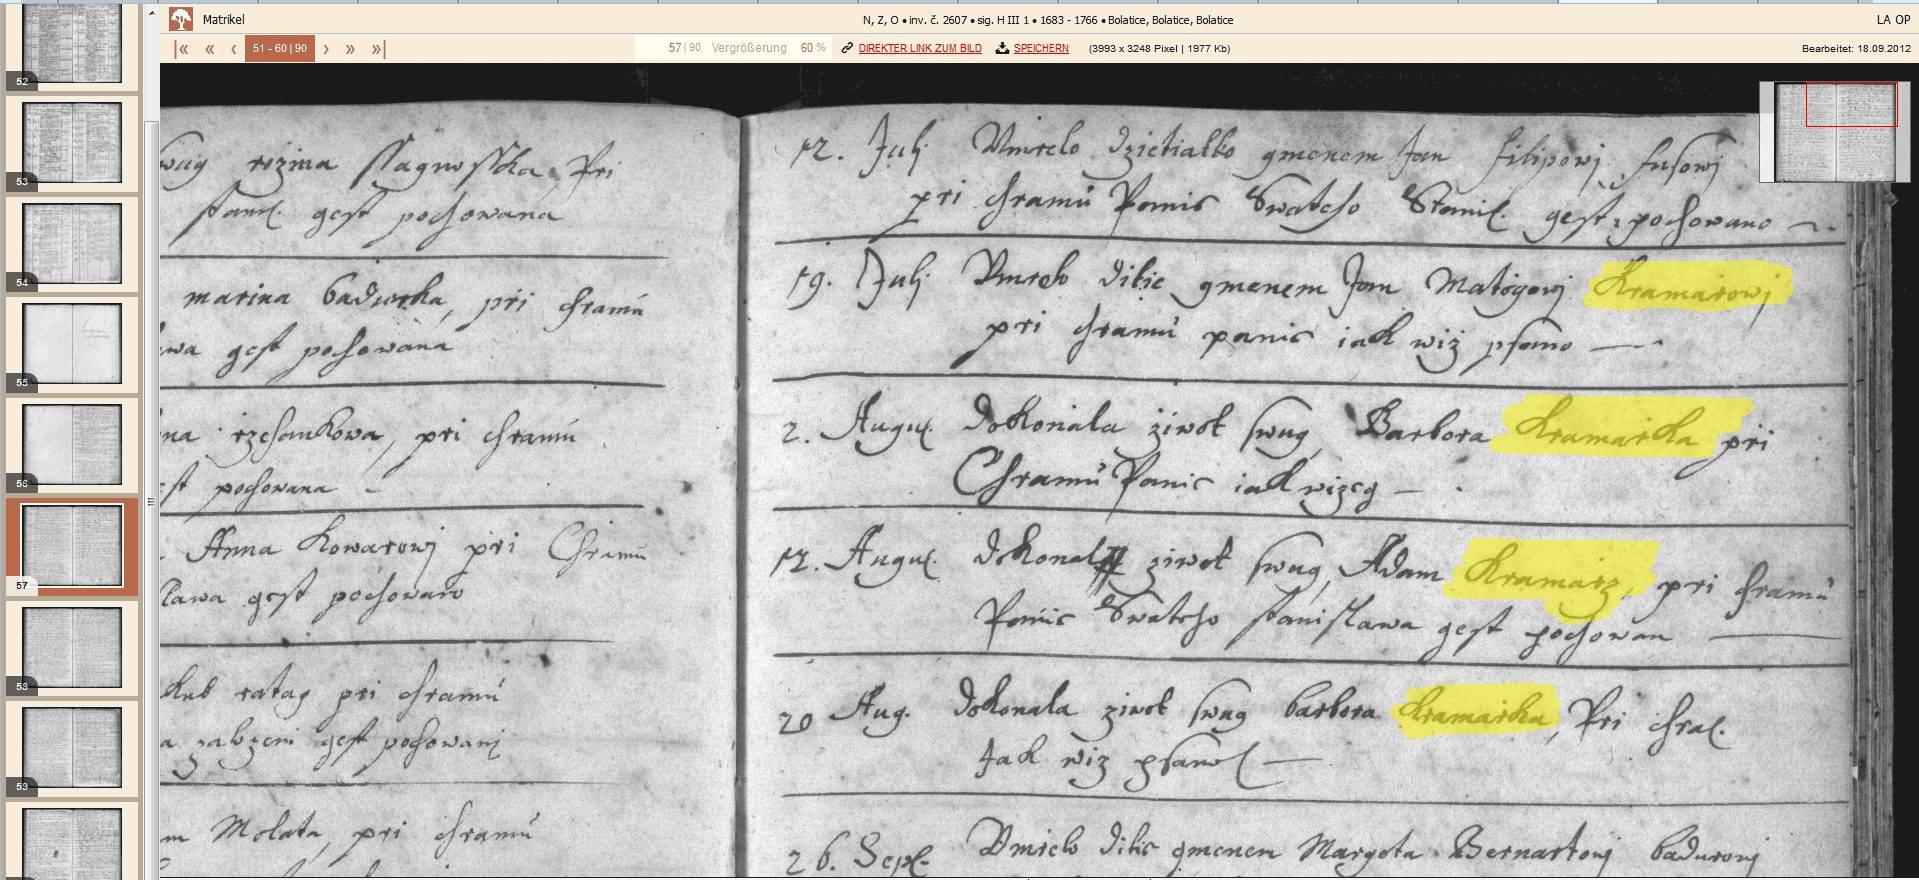 Matrikel
N, Z, O • inv. č. 2607 • sig. H III 1 • 1683 - 1766 • Bolatice, Bolatice, Bolatice
LA OP
51 - 60 | 90
57 | 90 Vergrößerung 60 %
DIREKTER LINK ZUM BILD
SPEICHERN
(3993 x 3248 Pixel | 1977 Kb)
Bearbeitet: 18.09.2012
52
53
54
55
56
57
58
59
swug rizina Pri
stanil. gest pochowana
marina badurka, pri chramu
wa gest pochowana
na rzehankowa, pri chramu
st pochowana
Anna Kowarowj pri Chramu
lawa gest pochowano
kub ratag pri chramu
a zalozeni gest pochowanj
m Molata, pri chramu
12. Julj Vmrelo dzietiatko gmenem Jan filipowj fusowj
pri chramu Panie Swateho Stanil. gest pochowano
19. Julj Vmrelo ditie gmenem Jan Matogowj Kramarowj
pri chramu panie iak wiz psano
2. Augus. dokonala ziwot swug Barbora Kramarka pri
Chramu Panie iak wizeg
12. Augus. dokonal ziwot swug, Adam Kramarz, pri chramu
Panie Swateho stanislawa gest pochowan
20 Aug. dokonala ziwot swug barbora kramarka, Pri chra.
Jak wiz psano
26. Sept. Vmrelo ditie gmenem Margeta Bernartowj badurowj